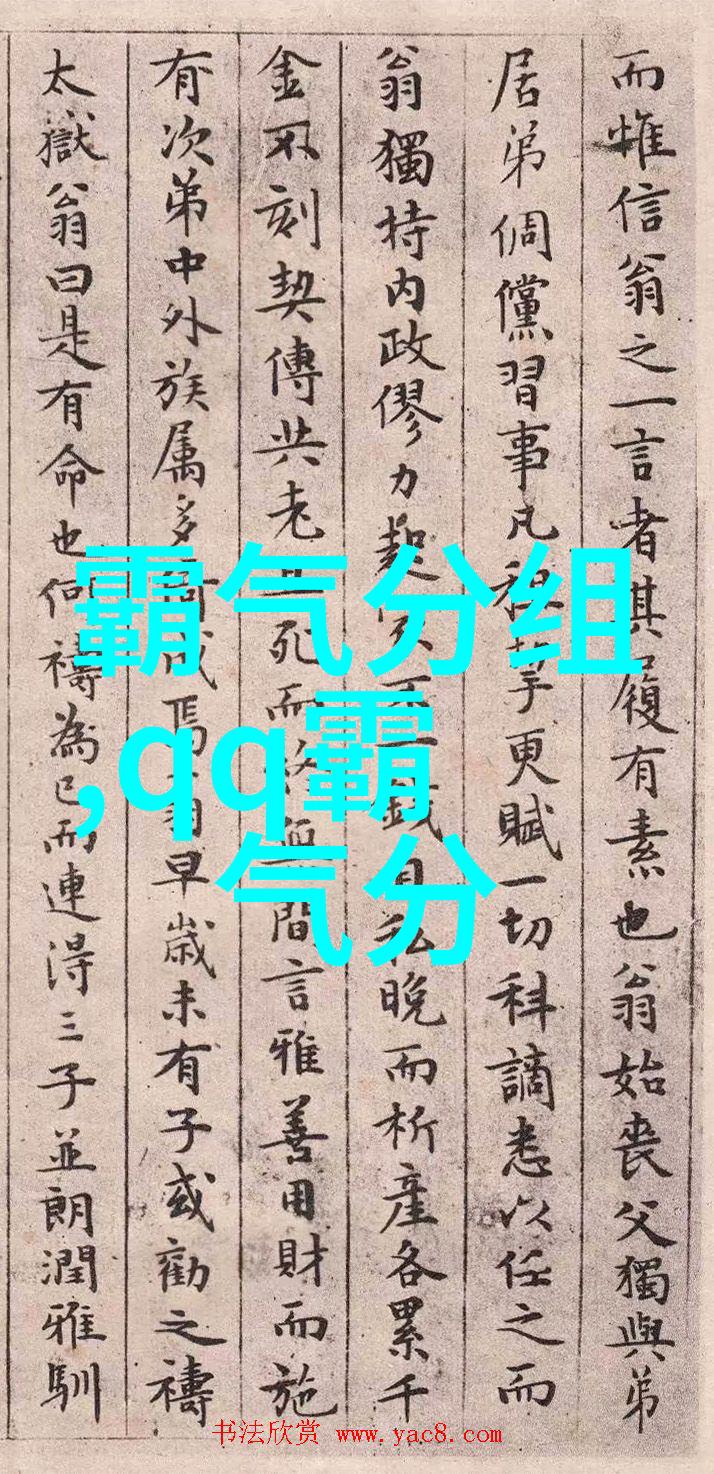 而惟信翁之一言者其履有素也翁始喪父獨與弟
居弟倜儻習事凡租更賦一切科謫悉以任之而
翁獨持内政僇力契私晚而析產各累千
金不刻契傳共老死而無間言雅善用財而施
有次弟中外族属多焉翁早歲未有子或勸之禱
太嶽翁曰是有命也何禱為已而連得三子並朗潤雅馴
霸气分组
,qq霸
气分
书法欣赏 www.yac8.com